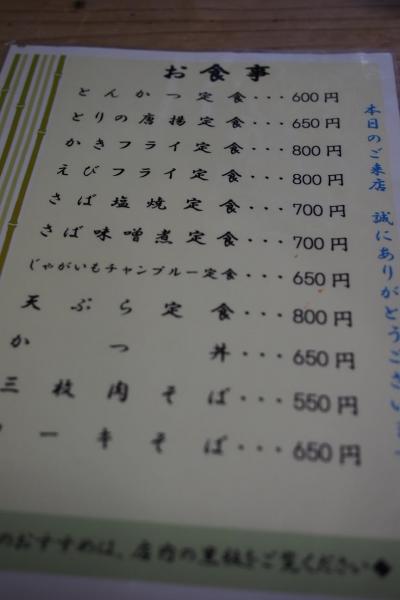 お食事
とんかつ定食・・・600円
とりの唐揚定食・・・650円
かきフライ定食・・・800円
えびフライ定食・・・800円
さば塩焼定食・・・700円
さば味噌煮定食・・・700円
じゃがいもチャンプルー定食・・・650円
天ぷら定食・・・800円
かつ丼・・・650円
三枚肉そば・・・550円
ーキそば・・・650円
のおすすめは、店内の黒板をご覧ください◆
本日のご来店 誠にありがとうござい